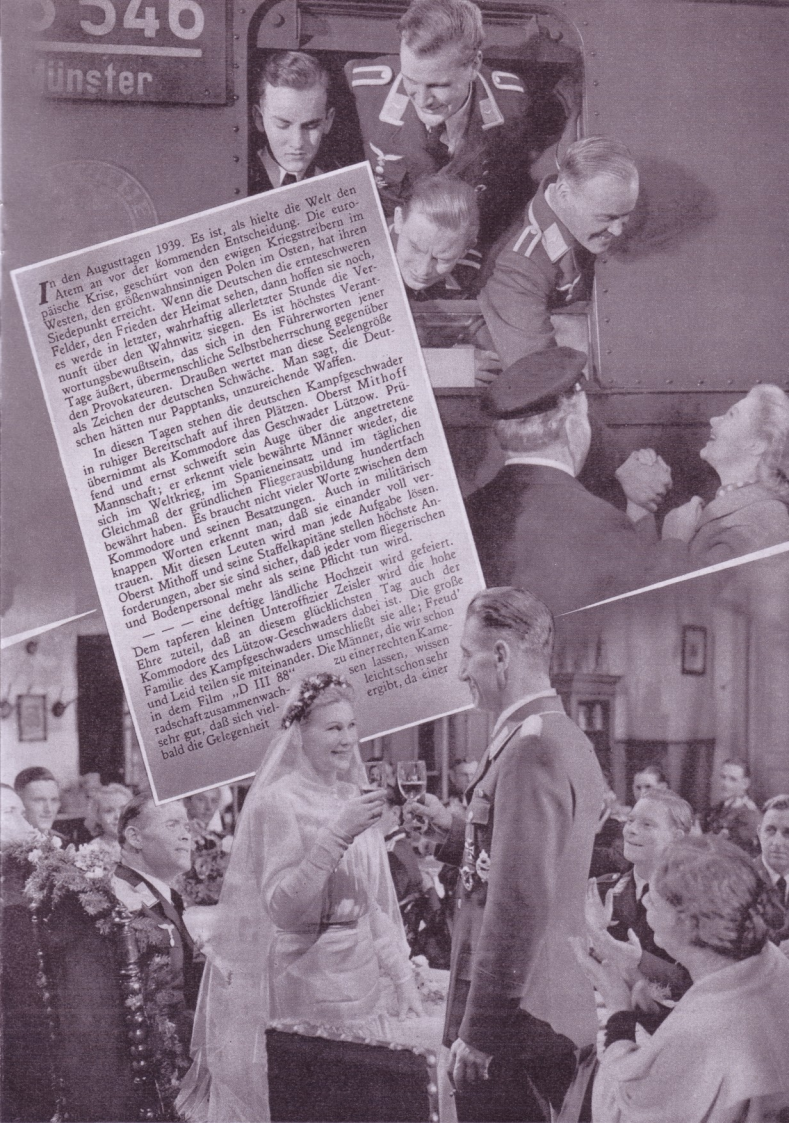 3 546
Münster
In den Augusttagen 1939. Es ist, als hielte die Welt den
Atem an vor der kommenden Entscheidung. Die euro-
päische Krise, geschürt von den ewigen Kriegstreibern im
Westen, den größenwahnsinnigen Polen im Osten, hat ihren
Siedepunkt erreicht. Wenn die Deutschen die ernteschweren
Felder, den Frieden der Heimat sehen, dann hoffen sie noch,
es werde in letzter, wahrhaftig allerletzter Stunde die Ver-
nunft über den Wahnwitz siegen. Es ist höchstes Verant-
wortungsbewußtsein, das sich in den Führerworten jener
Tage äußert, übermenschliche Selbstbeherrschung gegenüber
den Provokateuren. Draußen wertet man diese Seelengröße
als Zeichen der deutschen Schwäche. Man sagt, die Deut-
schen hätten nur Papptanks, unzureichende Waffen.
In diesen Tagen stehen die deutschen Kampfgeschwader
in ruhiger Bereitschaft auf ihren Plätzen. Oberst Mithoff
übernimmt als Kommodore das Geschwader Lützow. Prü-
fend und ernst schweift sein Auge über die angetretene
Mannschaft; er erkennt viele bewährte Männer wieder, die
sich im Weltkrieg, im Spanieneinsatz und im täglichen
Gleichmaß der gründlichen Fliegerausbildung hundertfach
bewährt haben. Es braucht nicht vieler Worte zwischen dem
Kommodore und seinen Besatzungen. Auch in militärisch
knappen Worten erkennt man, daß sie einander voll ver-
trauen. Mit diesen Leuten wird man jede Aufgabe lösen.
Oberst Mithoff und seine Staffelkapitäne stellen höchste An-
forderungen, aber sie sind sicher, daß jeder vom fliegerischen
und Bodenpersonal mehr als seine Pflicht tun wird.
— — — eine deftige ländliche Hochzeit wird gefeiert.
Dem tapferen kleinen Unteroffizier Zeisler wird die hohe
Ehre zuteil, daß an diesem glücklichsten Tag auch der
Kommodore des Lützow-Geschwaders dabei ist. Die große
Familie des Kampfgeschwaders umschließt sie alle; Freud'
und Leid teilen sie miteinander. Die Männer, die wir schon
in dem Film „D III 88" zu einer rechten Kame-
radschaft zusammenwach- sen lassen, wissen
sehr gut, daß sich viel- leicht schon sehr
bald die Gelegenheit ergibt, da einer